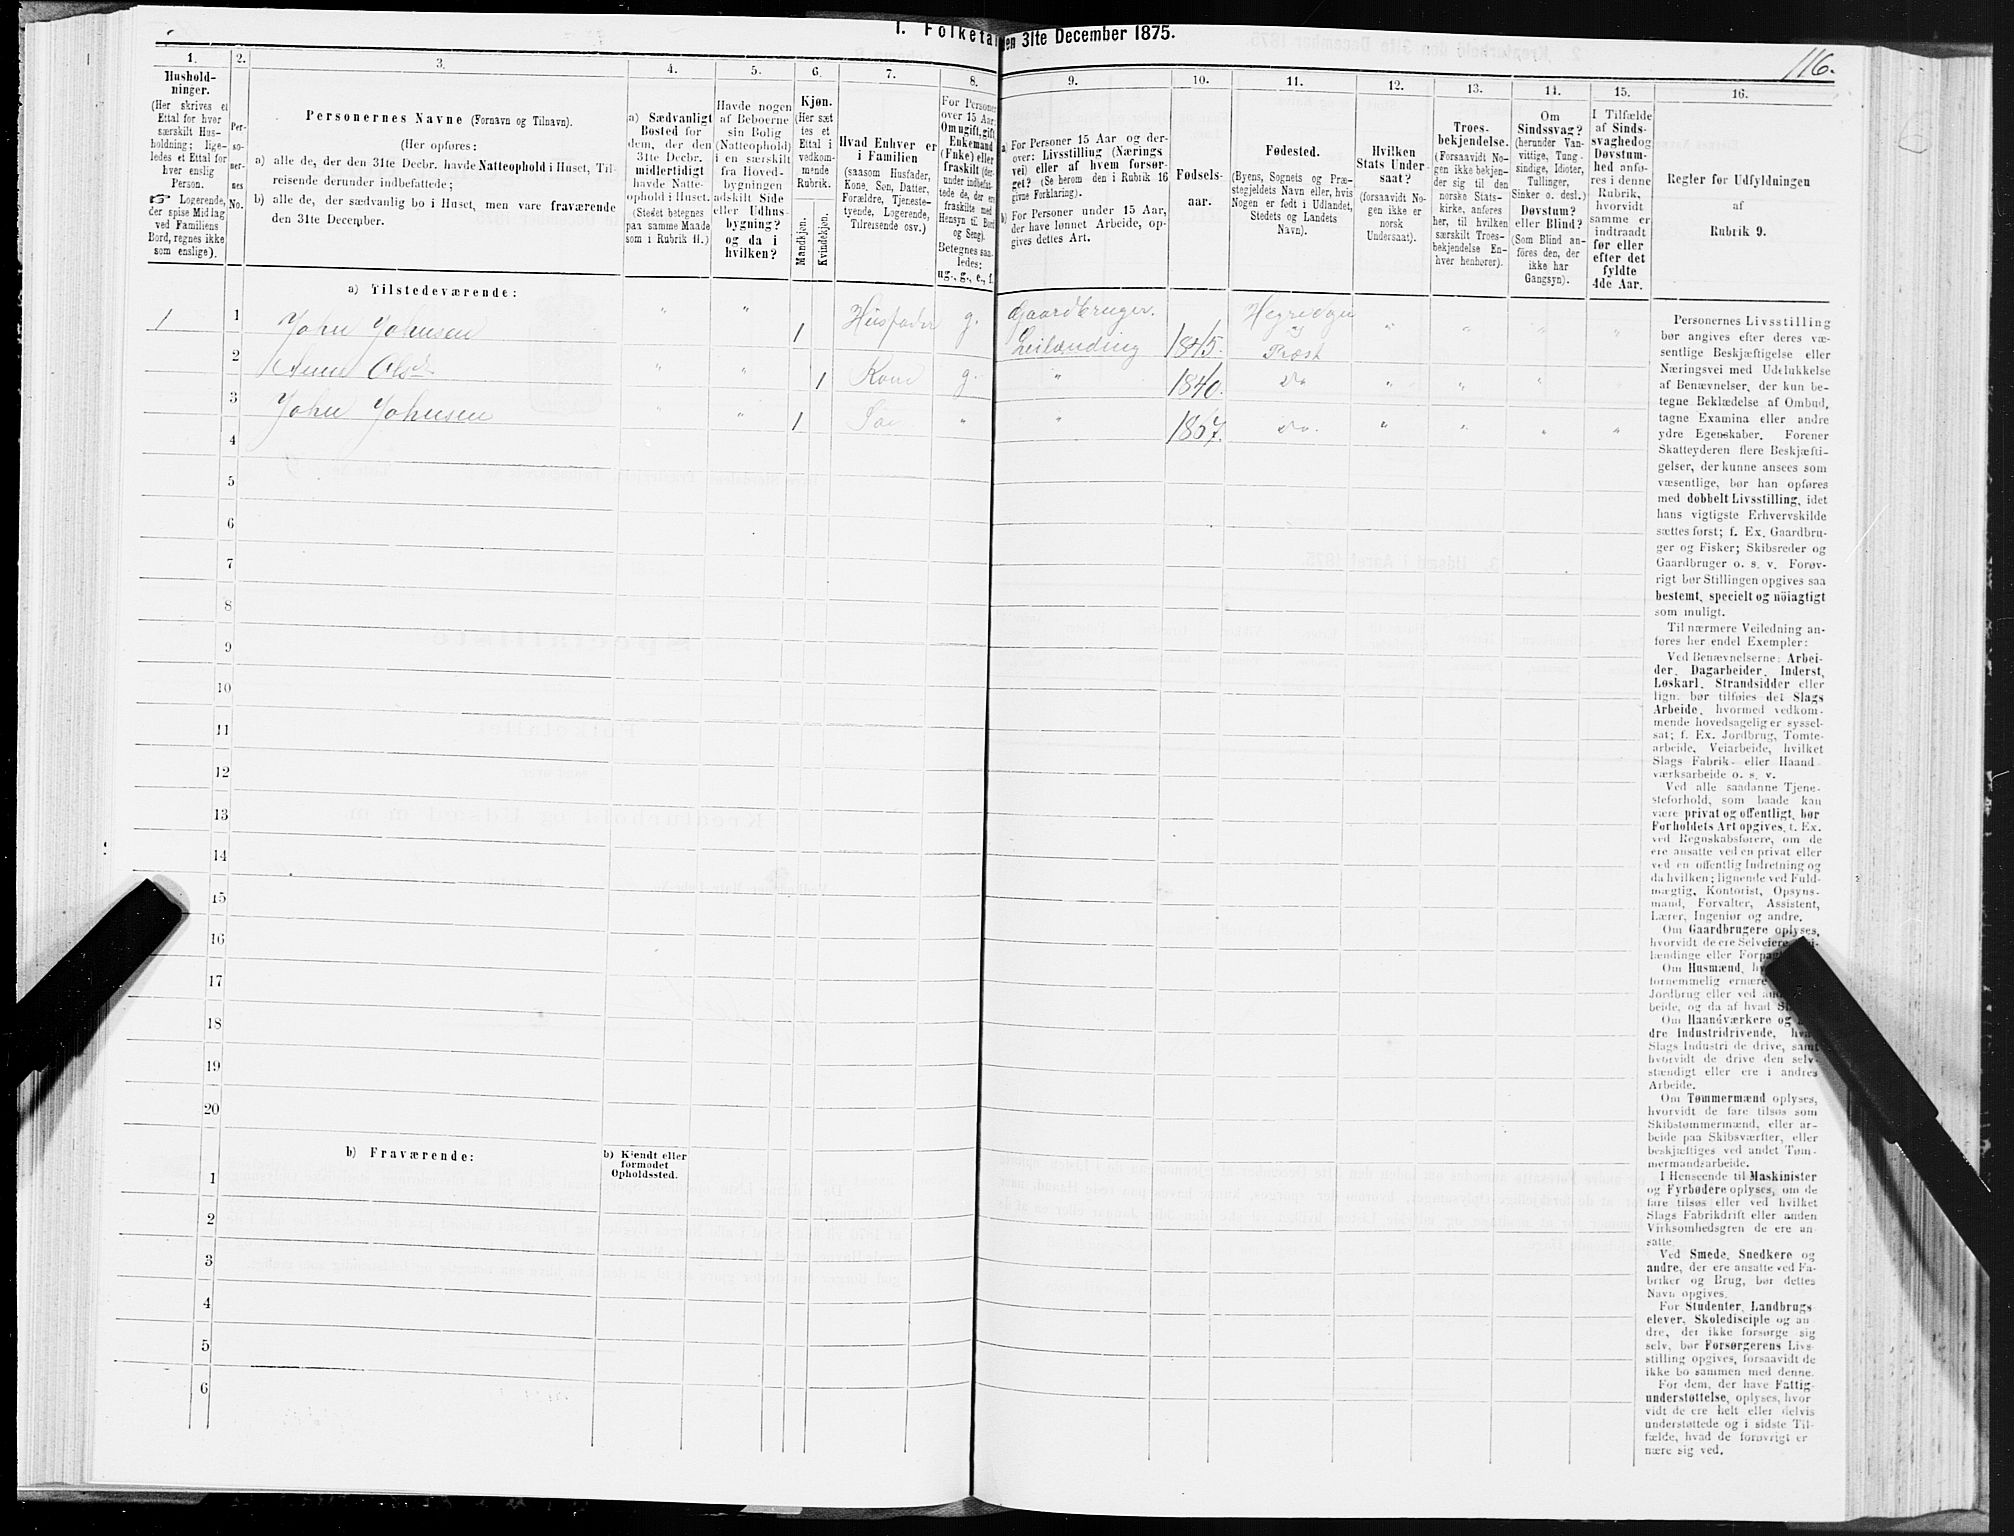 1. Folketal den 31te December 1875.
116.
1.
Hushold-
ninger.
(Her skrives et
Ettal for hver
særskilt Hus-
holdning; lige-
ledes et Ettal for
hver enslig
Person.
☞ Logerende,
der spise Middag
ved Familiens
Bord, regnes ikke
som enslige).
2.
Per-
so-
ner-
nes
No.
3.
Personernes Navne (Fornavn og Tilnavn).
(Her opføres:
a) alle de, der den 31te Decbr. havde Natteophold i Huset, Til-
reisende derunder indbefattede;
b) alle de, der sædvanlig bo i Huset, men vare fraværende
den 31te December.
4.
a) Sædvanligt
Bosted for
dem, der den
31te Decbr.
midlertidigt
havde Natte-
ophold i Huset.
(Stedet betegnes
paa samme Maade
som i Rubrik 11.)
5.
Havde nogen
af Beboerne
sin Bolig
(Natteophold)
i en særskilt
fra Hoved-
bygningen
adskilt Side
eller Udhus-
bygning?
og da i
hvilken?
6.
Kjøn.
(Her sæt
tes et
Ettal i
vedkom-
mende
Rubrik.
Mandkjøn.
Kvindekjøn.
7.
Hvad Enhver er
i Familien
(saasom Husfader,
Kone, Søn, Datter,
Forældre, Tjeneste-
tyende, Logerende,
Tilreisende osv.)
8.
For Personer
over 15 Aar:
Om ugift, gift,
Enkemand
(Enke) eller
fraskilt (der-
under indbefat-
tede de, der ere
fraskilte med
Hensyn til Bord
og Seng).
Betegnes saa-
ledes:
ug., g., e., f.
9.
a) For Personer 15 Aar og der-
over: Livsstilling (Nærings
vei) eller af hvem forsør-
get? (Se herom den i Rubrik 16
givne Forklaring).
b) For Personer under 15 Aar,
der have lønnet Arbeide, op-
gives dettes Art.
10.
Fødsels-
aar.
11.
Fødested.
(Byens, Sognets og Præ-
stegjeldets Navn eller, hvis
Nogen er født i Udlandet,
Stedets og Landets
Navn).
12.
Hvilken
Stats Under-
saat?
(forsaavidt No-
gen ikke er
norsk
Undersaat).
13.
Troes-
bekjendelse.
(Forsaavidt No-
gen ikke bekjen-
der sig til den
norske Stats-
kirke, anføres
her, til hvilken
særskilt Troes-
bekjendelse En-
hver henhører).
14.
Om
Sindssvag?
(herunder Van-
vittige, Tung-
sindige, Idioter,
Tullinger,
Sinker o. desl.)
Døvstum?
eller Blind?
(Som Blind an-
føres den, der
ikke har
Gangsyn).
15.
I Tilfælde
af Sinds-
svaghed og
Døvstum-
hed anfø-
res i denne
Rubrik,
hvorvidt
samme er
indtraadt
før eller
efter det
fyldte
4de Aar.
16.
Regler før Udfyldningen
af
Rubrik 9.
a) Tilstedeværende:
1 1 John Johnsen " " 1 Husfader g. Gaardbruger. Leilænding 1845. Hegre Sogn og Præst " " " "
2 Anne Olsd. " " 1 Kone g. " 1840. Do " " "
3 John Johnsen " " 1 Søn " " 1867. Do. " " " "
4
5
6
7
8
9
10
11
12
13
14
15
16
17
18
19
20
b) Fraværende:
b) Kjendt eller
formodet
Opholdssted.
1
2
3
4
5
6
Personernes Livsstilling
bør angives efter deres væ-
sentlige Beskjæftigelse eller
Næringsvei med Udelukkelse
af Benævnelser, der kun be-
tegne Beklædelse af Ombud,
tagne Examina eller andre
ydre Egenskaber. Forener
Skatteyderen flere Beskjæfti-
gelser, der kunne ansees som
væsentlige, bør han opføres
med dobbelt Livsstilling, idet
hans vigtigste Erhvervskilde
sættes først; f. Ex. Gaardbru-
ger og Fisker; Skibsreder og
Gaardbruger o. s. v. Forøv-
rigt bør Stillingen opgives saa
bestemt, specielt og nöiagtigt
som muligt.
Til nærmere Veiledning an-
føres her endel Exempler:
Ved Benævnelserne: Arbei-
der, Dagarbeider, Inderst,
Løskarl, Strandsidder eller
lign. bør tilføies det Slags
Arbeide, hvormed vedkom-
mende hovedsagelig er syssel-
sat; f. Ex. Jordbrug, Tomte-
arbeide, Veiarbeide, hvilket
Slags Fabrik- eller Haand
værksarbeide o. s. v.
Ved alle saadanne Tjene-
steforhold, som baade kan
være privat og offentligt, bør
Forholdets Art opgives, f. Ex.
ved Regnskabsførere, om de
ere ansatte ved en privat eller
ved en offentlig Indretning og
da hvilken; lignende ved Fuld-
mægtig, Kontorist, Opsyns-
mand, Forvalter, Assistent,
Lærer, Ingeniør og andre.
Om Gaardbrugere oplyses,
hvorvidt de ere Selveiere,
lændinge eller
Om Husmænd,
fornemmelig
Jordbrug eller ved
beide, og da af hvad
Om Haandværkere og
dre Industridrivende,
Slags Industri de drive, samt
hvorvidt de drive den selv-
stændigt eller ere i andres
Arbeide.
Om Tømmermænd oplyses,
hvorvidt de fare tilsøs som
Skibstømmermænd, eller ar-
beide paa Skibsværfter, eller
beskjæftiges ved andet Tøm-
mermandsarbeide.
I Henseende til Maskinister
og Fyrbødere oplyses, om de
fare tilsøs eller ved hvilket
Slags Fabrikdrift eller anden
Virksomhedsgren de ere an-
satte.
Ved Smede, Snedkere og
andre, der ere ansatte ved Fa-
briker og Brug, bør dettes
Navn opgives.
For Studenter, Landbrugs
elever, Skoledisciple og an
dre, der ikke forsørge sig
selv, bør Forsørgerens Livs-
stilling opgives, forsaavidt de
ikke bo sammen med denne.
For dem, der have Fattig-
understøttelse, oplyses, hvor
vidt de ere helt eller delvis
understøttede og i sidste Til-
fælde, hvad de forøvrigt er
nære sig ved.